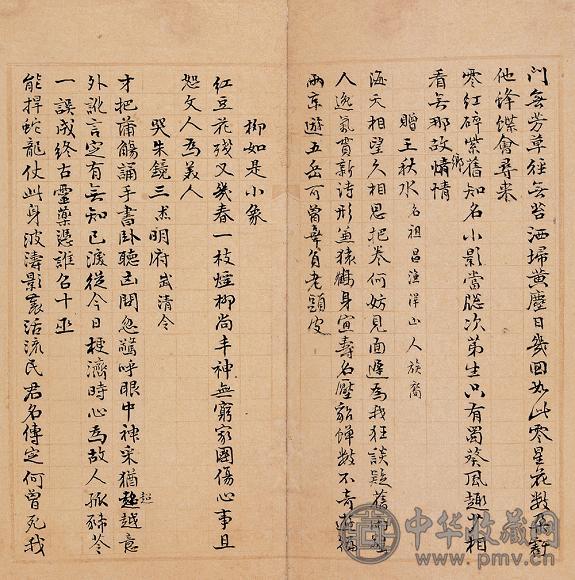 門無芳草徑無苔洒埽黃塵日幾回如此零星花數朵許
他蜂蝶會尋來
零紅碎紫舊知名小影當階次第生只有蜀葵風趣相
看無那故情情
贈王秋水 名祖昌漁洋山人族裔
海天相望久相思把卷何妨見面遲為我狂談疑舊雨
人逸氣貫新詩形兼猿鶴身宜壽名壓貂蟬數不奇
兩京遊五岳可曾辜負老頭皮
柳如是小象
紅豆花殘又幾春一枝煙柳尚丰神無窮家國傷心事且
恕文人為美人
哭朱鏡三杰明府 武清令
才把蒲觴誦手書臥聽凶問忽驚呼眼中神采猶超越意
外訛言定有無知己淚從今日梗濟時心為故人孤豨苓
一誤成終古靈藥憑誰名十巫
能捍蛇龍仗此身波濤影裏活流民君名傳定何曾死我
中华收藏网
www.pmv.cn